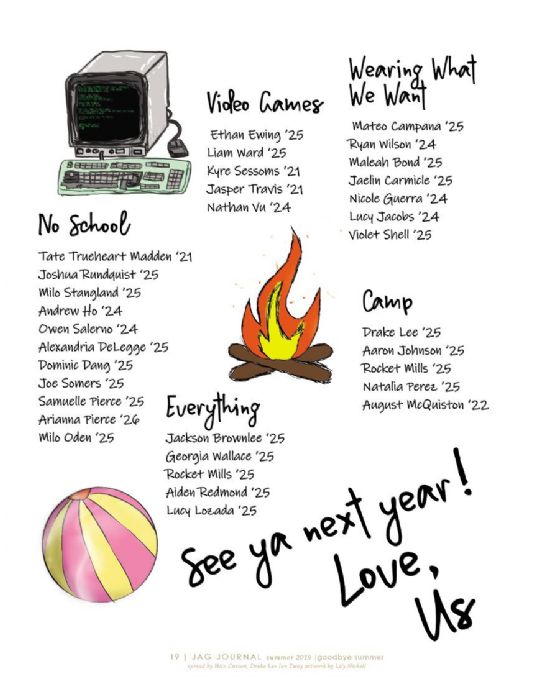 Video Games
Ethan Ewing '25
Liam Ward '25
Kyre Sessoms '21
Jasper Travis '21
Nathan Vu '24
Wearing What
We Want
Mateo Campana '25
Ryan Wilson '24
Maleah Bond '25
Jaelin Carmicle '25
Nicole Guerra '24
Lucy Jacobs '24
Violet Shell '25
No School
Tate Trueheart Madden '21
Joshua Rundquist '25
Milo Stangland '25
Andrew Ho '24
Owen Salerno '24
Alexandria DeLegge '25
Dominic Dang '25
Joe Somers '25
Samuelle Pierce '25
Arianna Pierce '26
Milo Oden '25
Camp
Drake Lee '25
Aaron Johnson '25
Rocket Mills '25
Natalia Perez '25
August McQuiston '22
Everything
Jackson Brownlee '25
Georgia Wallace '25
Rocket Mills '25
Aiden Redmond '25
Lucy Lozada '25
See ya next year!
Love,
Us
19 | JAG JOURNAL summer 2019 |goodbye summer
spread by